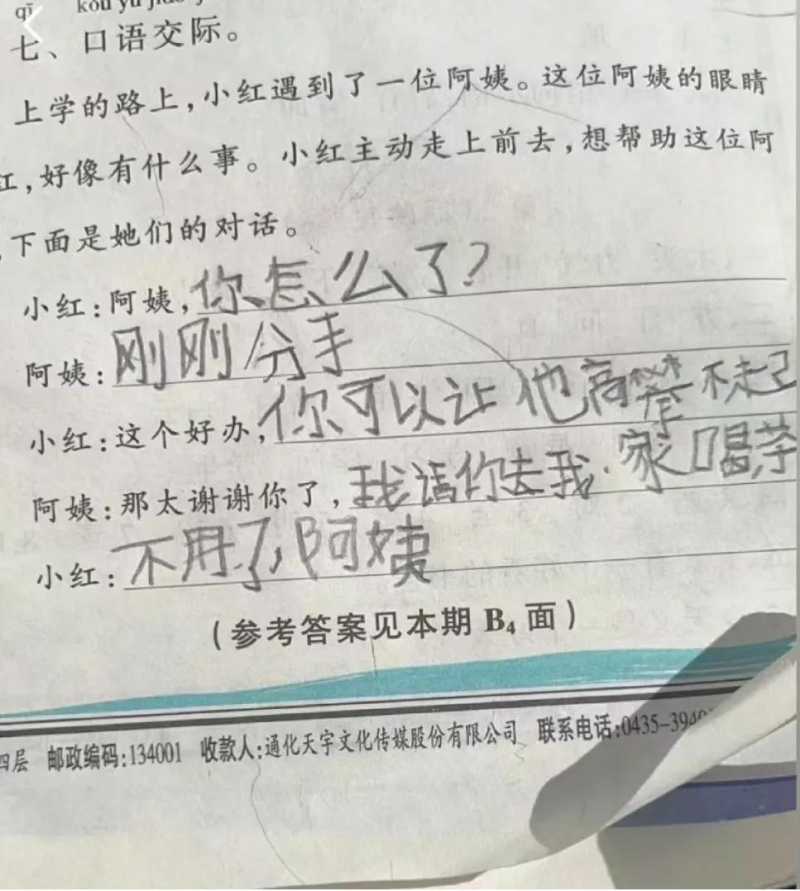 qī kǒu yǔ jiāo
七、口语交际。
上学的路上,小红遇到了一位阿姨。这位阿姨的眼睛
红,好像有什么事。小红主动走上前去,想帮助这位阿
,下面是她们的对话。
小红:阿姨,你怎么了?
阿姨:刚刚分手
小红:这个好办,你可以让他高攀不起
阿姨:那太谢谢你了,我请你去我家喝茶
小红:不用了,阿姨
(参考答案见本期 B₄ 面)
四层 邮政编码:134001 收款人:通化天宇文化传媒股份有限公司 联系电话:0435-394